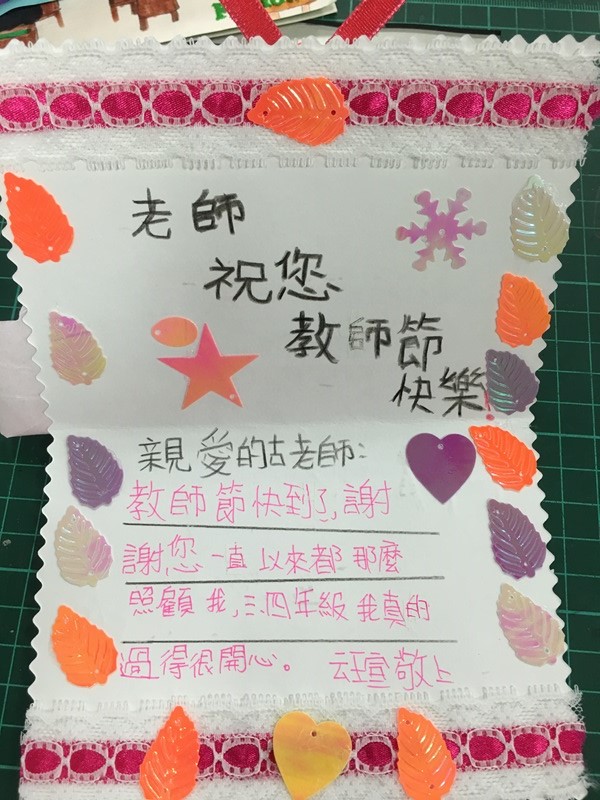 老師
祝您
教師節
快樂!
親愛的古老師:
教師節快到了,謝
謝您一直以來都那麼
照顧我,三、四年級我真的
過得很開心。 云宣敬上